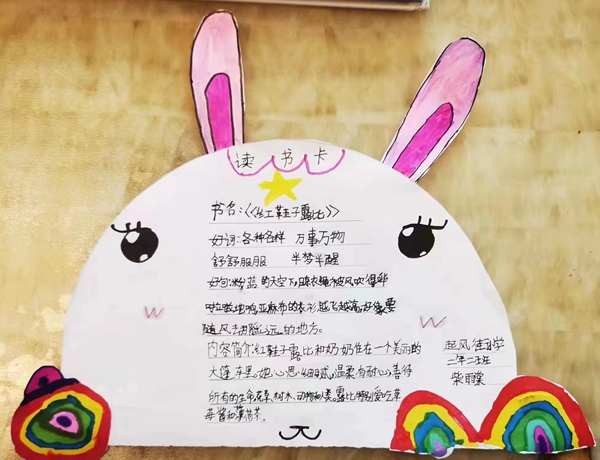 读书卡
书名:《红鞋子露比》
好词:各种各样 万事万物
舒舒服服 半梦半醒
好句:粉蓝的天空下,晾衣绳被风吹得哗
啦啦地响,亚麻布的衣衫越飞越高,好像要
随风去那遥远的地方。
内容简介:红鞋子露比和奶奶住在一个美丽的
大篷车里。她心思细腻,温柔有耐心,善待
所有的生命花草、树木、动物和美。露比特别爱吃草
莓酱和薄荷茶。
起凤街小学
二年二班
柴雨棠